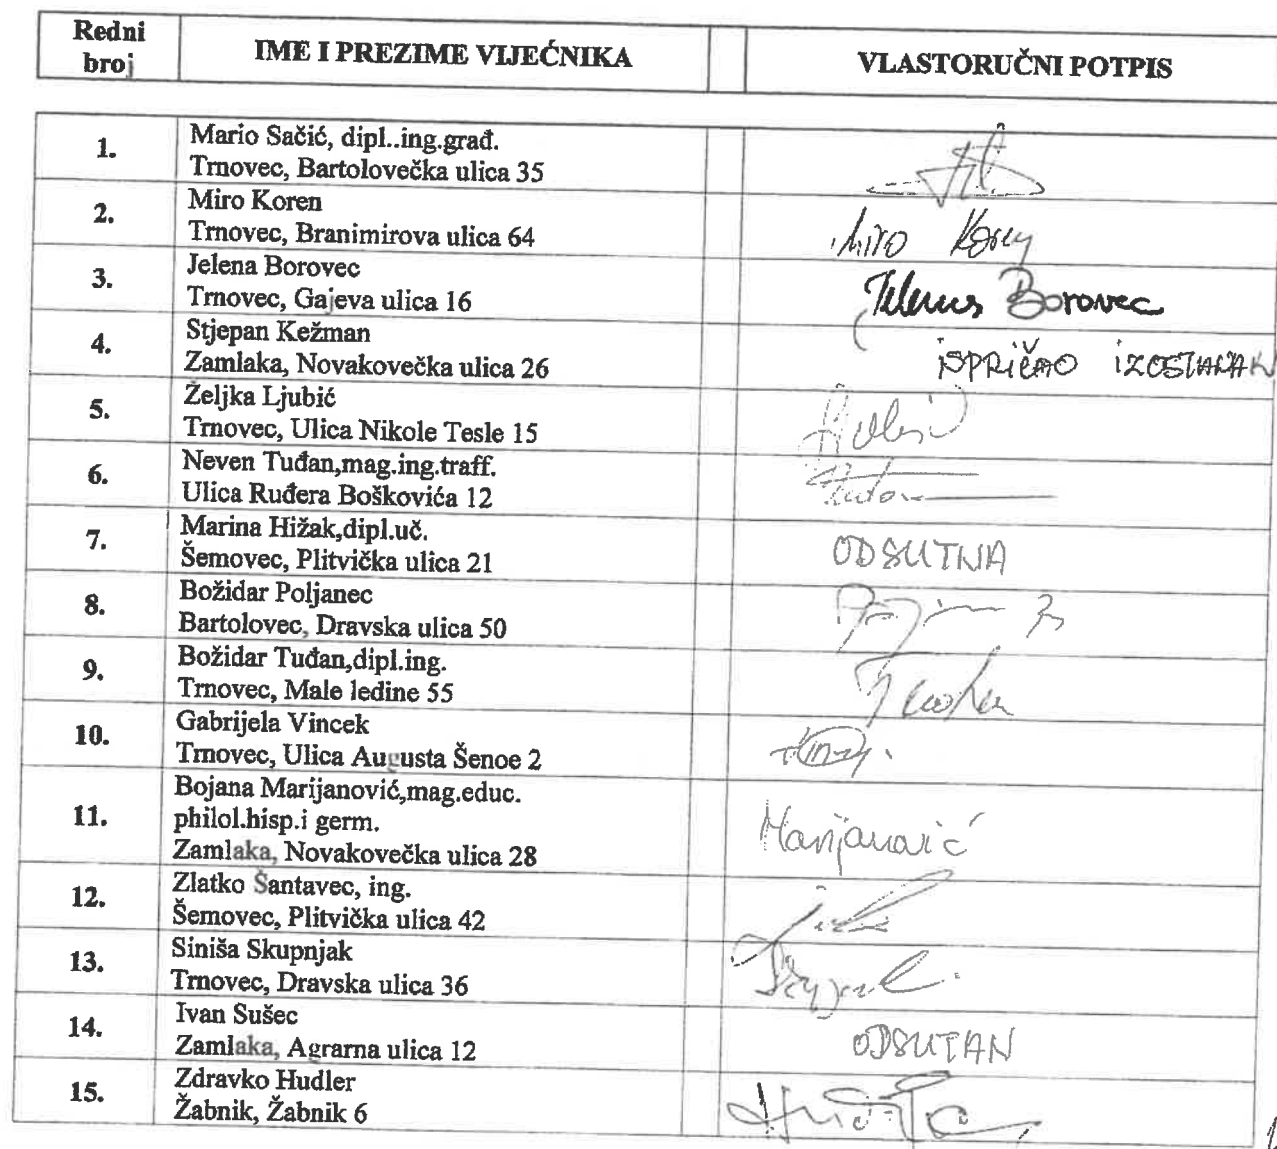 Redni broj IME I PREZIME VIJEĆNIKA VLASTORUČNI POTPIS
1. Mario Sačić, dipl..ing.građ.
Trnovec, Bartolovečka ulica 35
2. Miro Koren
Trnovec, Branimirova ulica 64
Miro Koren
3. Jelena Borovec
Trnovec, Gajeva ulica 16
Jelena Borovec
4. Stjepan Kežman
Zamlaka, Novakovečka ulica 26
ISPRIČAO IZOSTANAK
5. Željka Ljubić
Trnovec, Ulica Nikole Tesle 15
6. Neven Tuđan,mag.ing.traff.
Ulica Ruđera Boškovića 12
7. Marina Hižak,dipl.uč.
Šemovec, Plitvička ulica 21
ODSUTNA
8. Božidar Poljanec
Bartolovec, Dravska ulica 50
9. Božidar Tuđan,dipl.ing.
Trnovec, Male ledine 55
10. Gabrijela Vincek
Trnovec, Ulica Augusta Šenoe 2
11. Bojana Marijanović,mag.educ.
philol.hisp.i germ.
Zamlaka, Novakovečka ulica 28
Marijanović
12. Zlatko Šantavec, ing.
Šemovec, Plitvička ulica 42
13. Siniša Skupnjak
Trnovec, Dravska ulica 36
14. Ivan Sušec
Zamlaka, Agrarna ulica 12
ODSUTAN
15. Zdravko Hudler
Žabnik, Žabnik 6